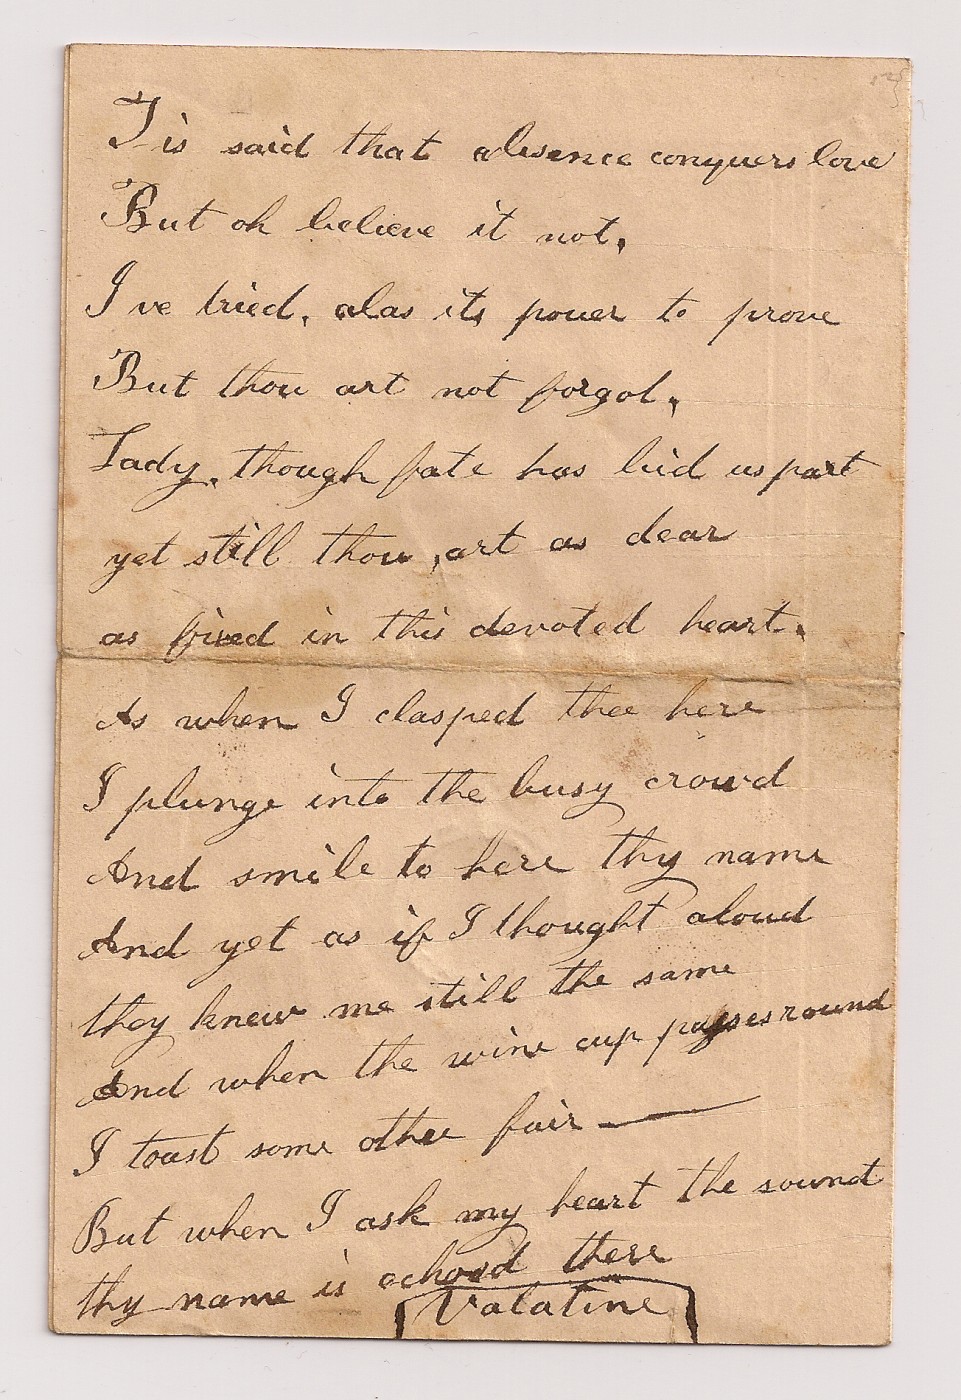 Tis said that absence conquers love
But oh believe it not.
I ve tried, alas its power to prove
But thou art not forgot.
Lady, though fate has bid us part
yet still thou art as dear
as fixed in this devoted heart.
As when I clasped thee here
I plunge into the busy crowd
And smile to here thy name
And yet as if I thought aloud
they know me still the same
And when the wine cup passes round
I toast some other fair —
But when I ask my heart the sound
thy name is echoed there
Valatine